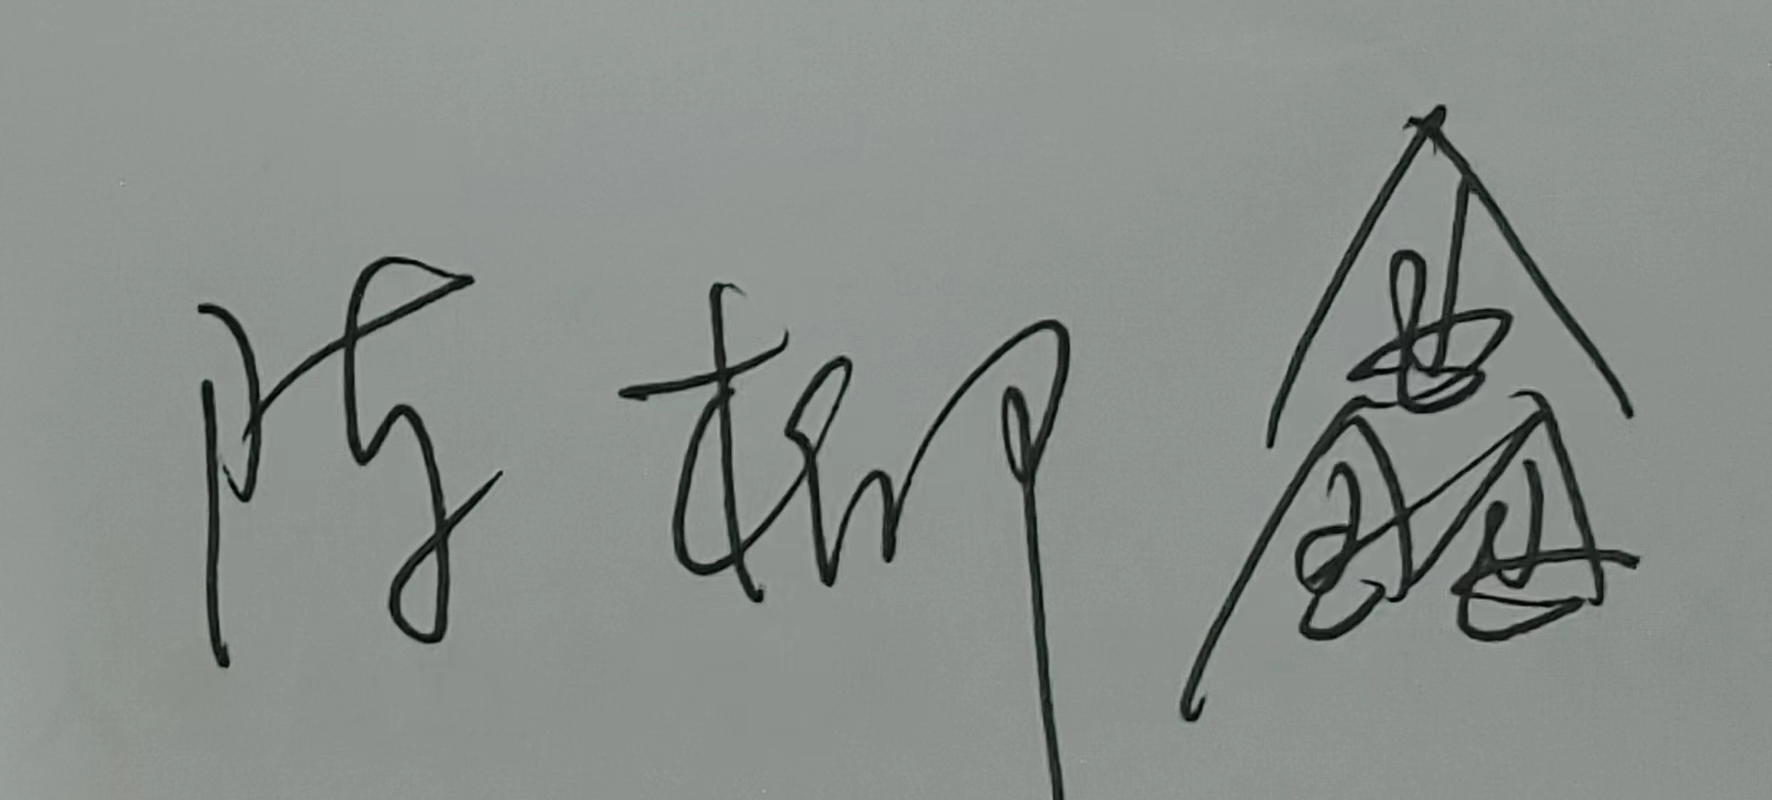 陈柳鑫